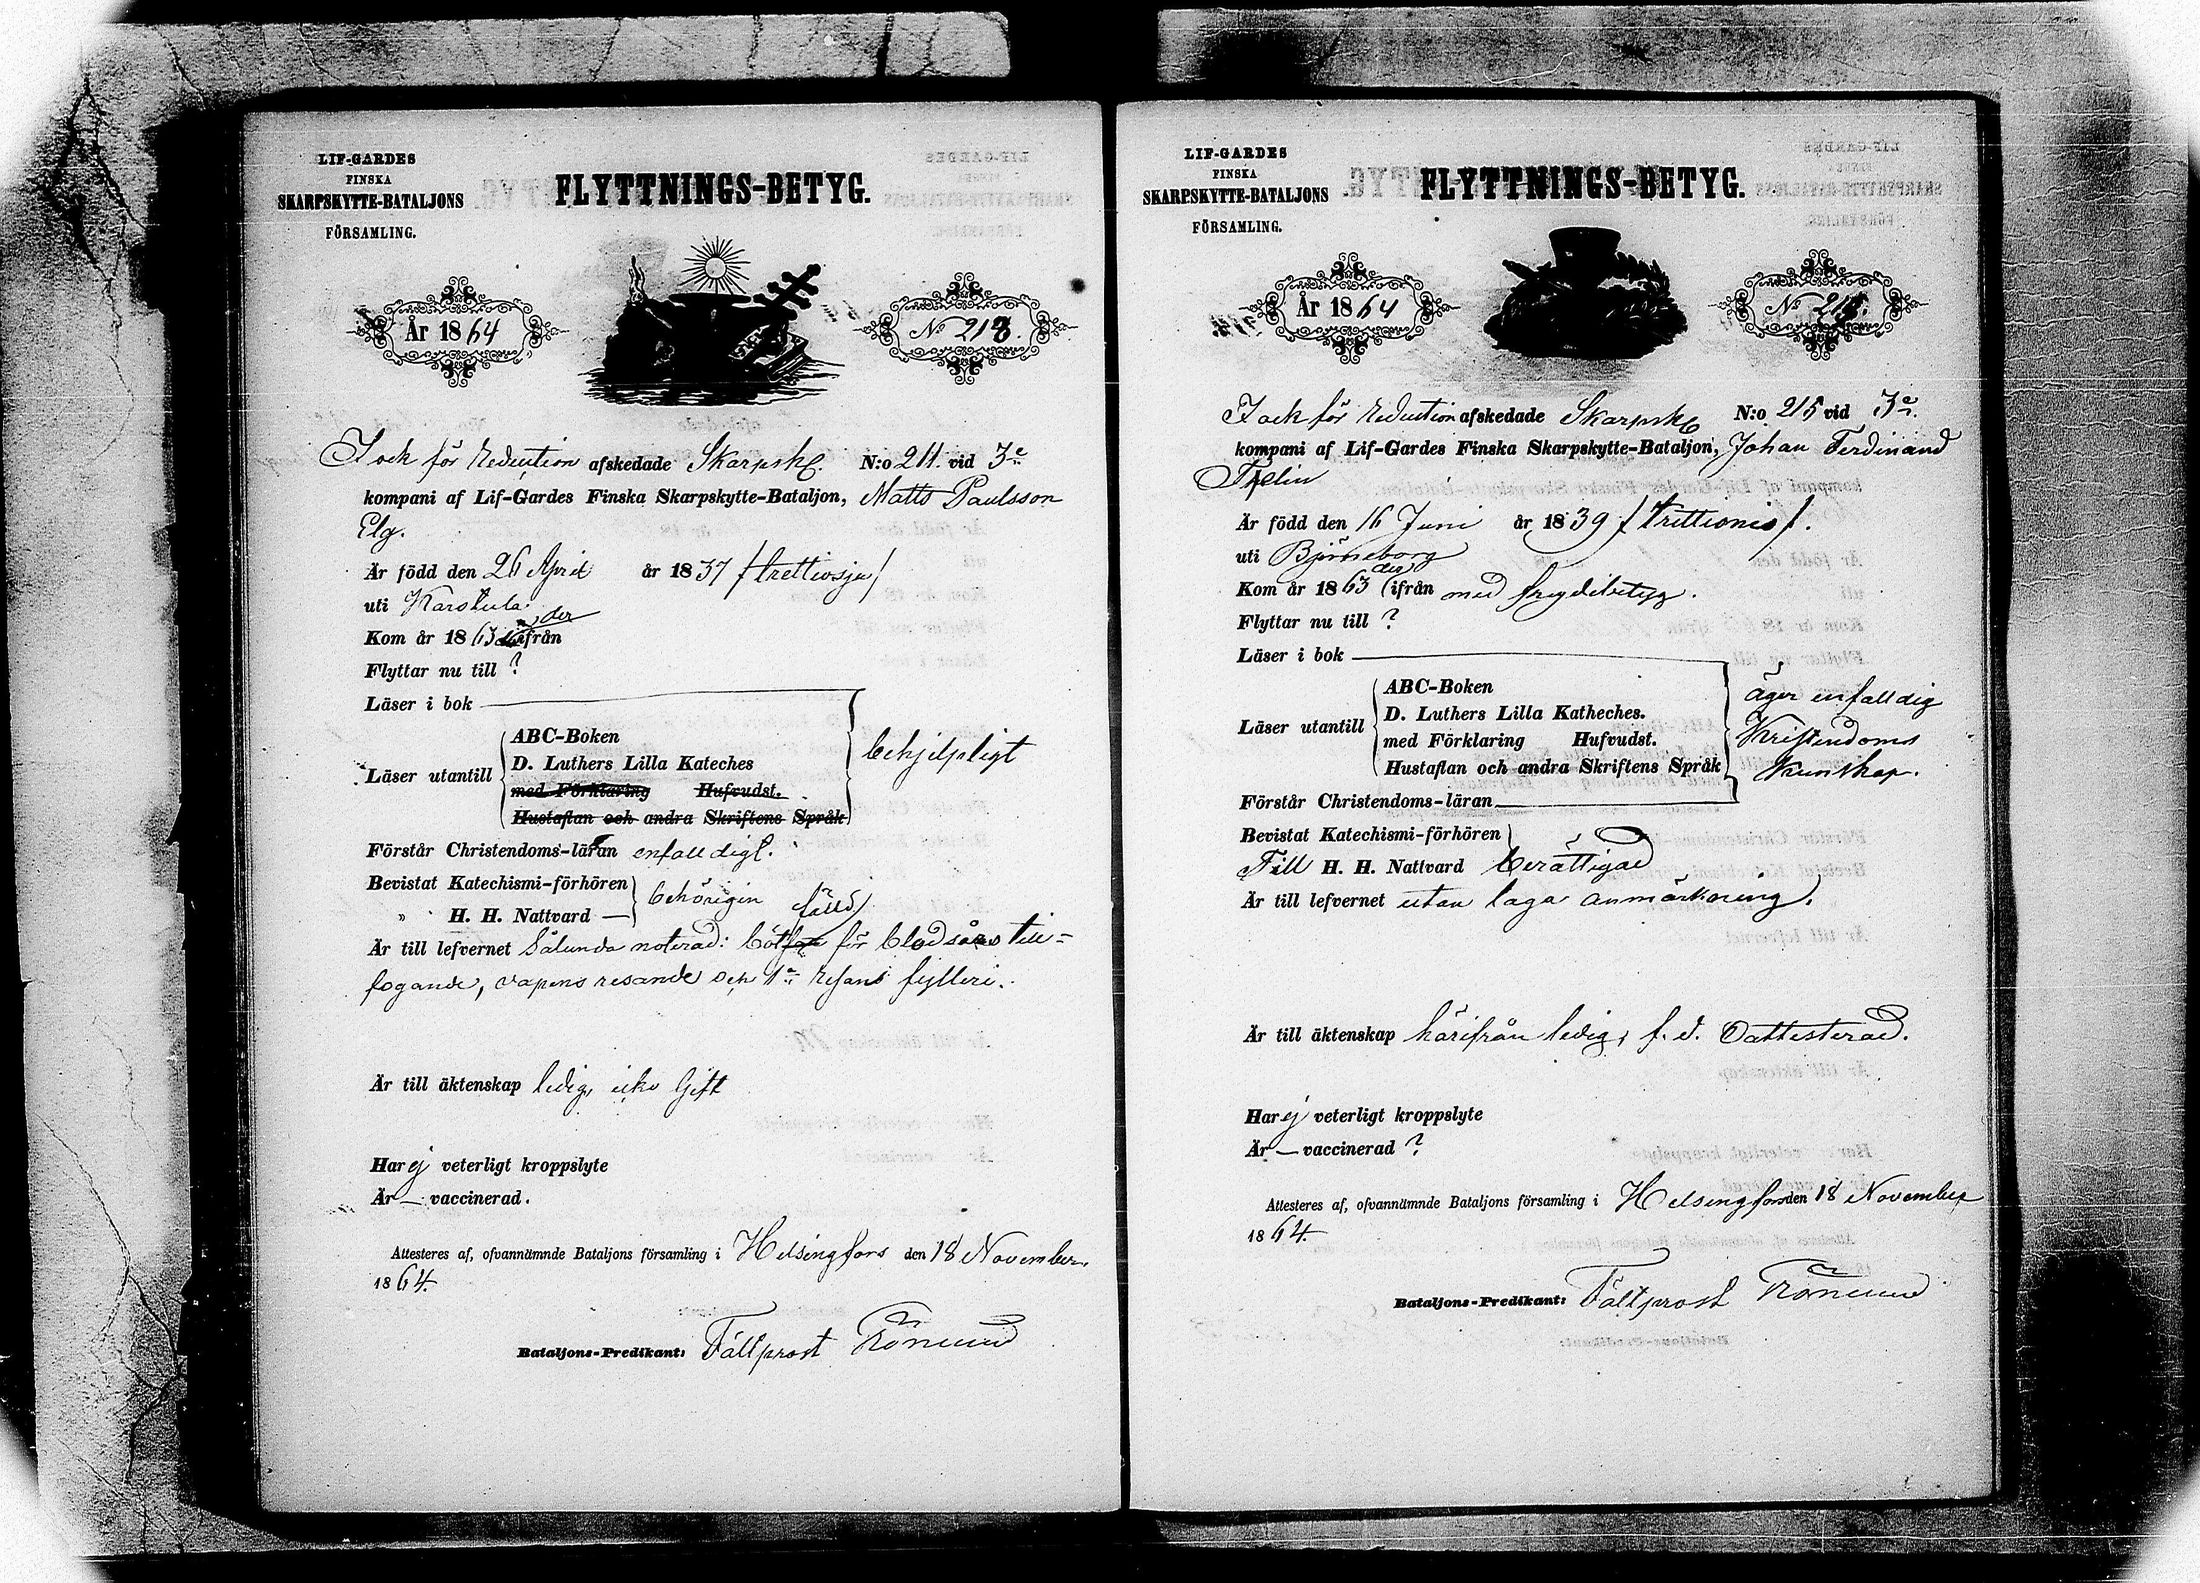 LIF-GARDES
FINSKA
SKARPSKYTTE-BATALJONS
FÖRSAMLING.
FLYTTNINGS-BETYG.
År 1864
No 213.
I och för Reduction afskedade Skarpsk. N:o 211. vid 3e
kompani af Lif-Gardes Finska Skarpskytte-Bataljon, Matts Paulsson
Elg.
Är född den 26 April år 1837 /trettiosju/
uti Karstula.
Kom år 1863 der ifrån
Flyttar nu till ?
Läser i bok
Läser utantill
ABC-Boken
D. Luthers Lilla Kateches
med Förklaring Hufvudst.
Hustaflan och andra Skriftens Språk
behjelpligt
Förstår Christendoms-läran enfalldigt.
Bevistat Katechismi-förhören
" H. H. Nattvard
behörigen
Är till lefvernet Sålunda noterad: bötfälld för blodsårs till-
fogande, vapens resande och 1a resans fylleri.
Är till äktenskap ledig, icke gift
Har ej veterligt kroppslyte
Är — vaccinerad.
Attesteres af, ofvannämnde Bataljons församling i Helsingfors den 18 November.
1864.
Bataljons-Predikant: Fältprost
LIF-GARDES
FINSKA
SKARPSKYTTE-BATALJONS
FÖRSAMLING.
FLYTTNINGS-BETYG.
År 1864
No
I och för Reduction afskedade Skarpsk. N:o 215 vid 3e
kompani af Lif-Gardes Finska Skarpskytte-Bataljon, Johan Ferdinand
Thelin
Är född den 16 Juni år 1839 /trettionio/.
uti Björneborg
Kom år 1863 der ifrån med frejdebetyg.
Flyttar nu till ?
Läser i bok
Läser utantill
ABC-Boken
D. Luthers Lilla Katheches.
med Förklaring Hufvudst.
Hustaflan och andra Skriftens Språk
Förstår Christendoms-läran
äger enfalldig
Kristendoms
Kunskap.
Bevistat Katechismi-förhören
Till H. H. Nattvard berättigad
Är till lefvernet utan laga anmärkning.
Är till äktenskap härifrån ledig, f. d. oattesterad.
Har ej veterligt kroppslyte
Är — vaccinerad ?
Attesteres af, ofvannämnde Bataljons församling i Helsingfors den 18 November
1864.
Bataljons-Predikant: Fältprost